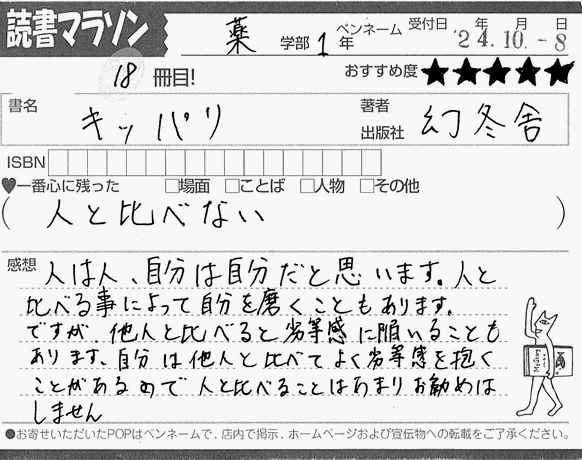 読書マラソン
薬 学部 1 年 ペンネーム 受付日 年 月 日
'24.10.-8
18 冊目! おすすめ度 ★★★★★
書名 キッパリ 著者 出版社 幻冬舎
ISBN
♥一番心に残った □場面 □ことば □人物 □その他
(人と比べない)
感想 人は人、自分は自分だと思います。人と
比べる事によって自分を磨くこともあります。
ですが 他人と比べると劣等感に陥いることも
あります。自分は他人と比べてよく劣等感を抱く
ことがあるので人と比べることはあまりお勧めは
しません
●お寄せいただいたPOPはペンネームで、店内で掲示、ホームページおよび宣伝物への転載をご了承ください。